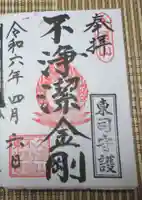 奉拝
不浄潔金剛
東司守護
令和六年四月六日